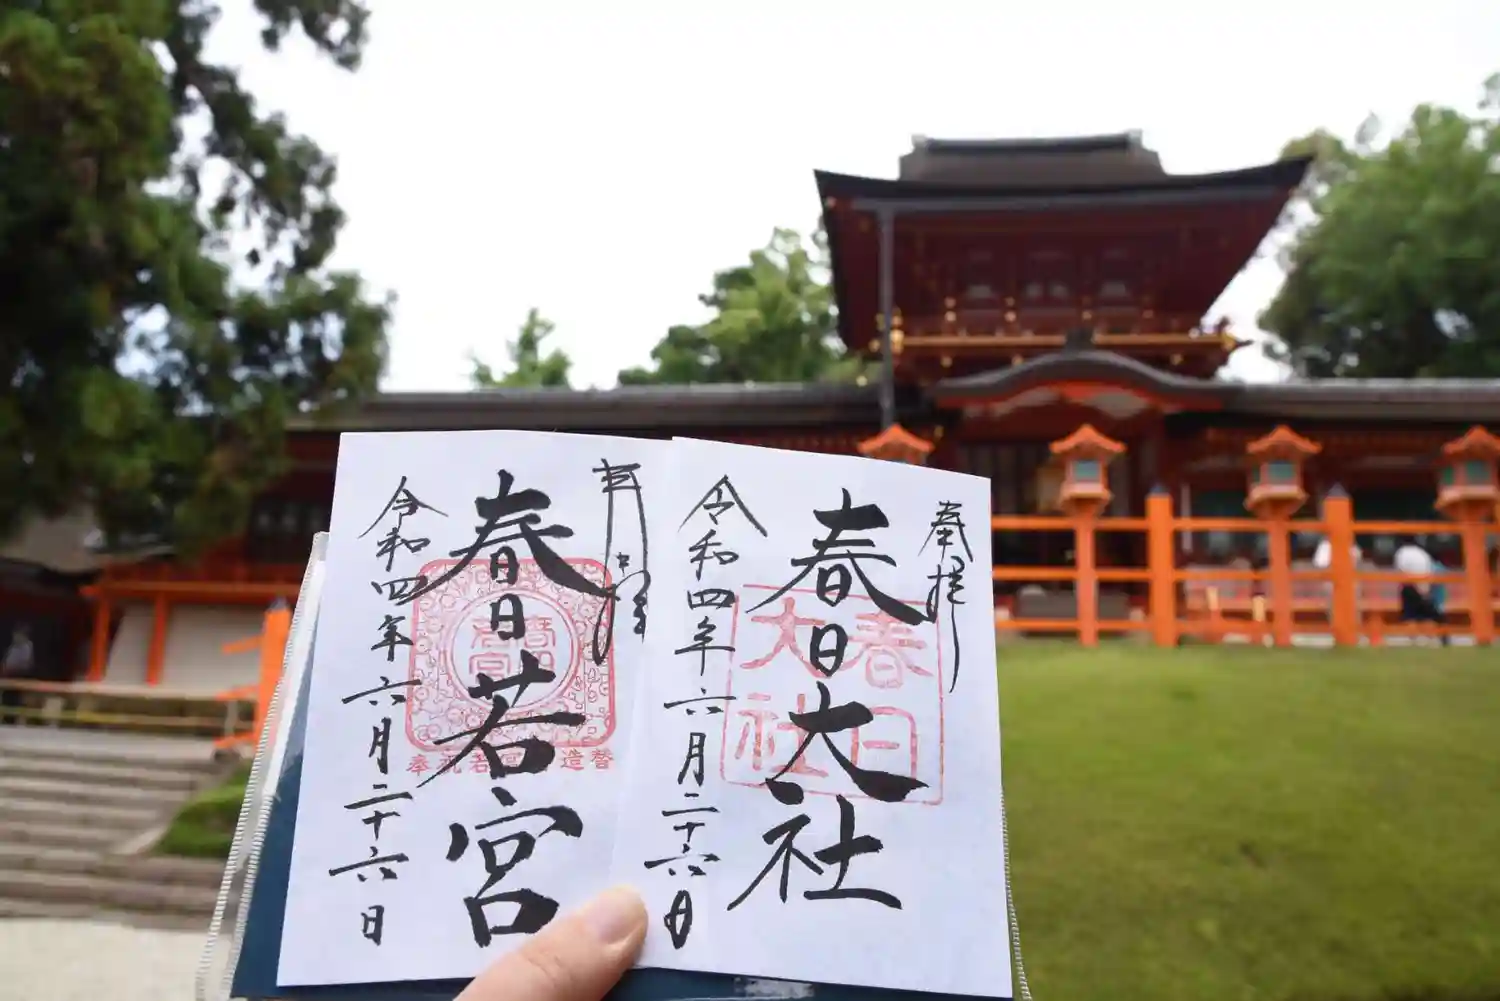 奉拝
春日大社
令和四年六月二十六日
春日大社
春日若宮
令和四年六月二十六日
若宮
造替
奉祝若宮